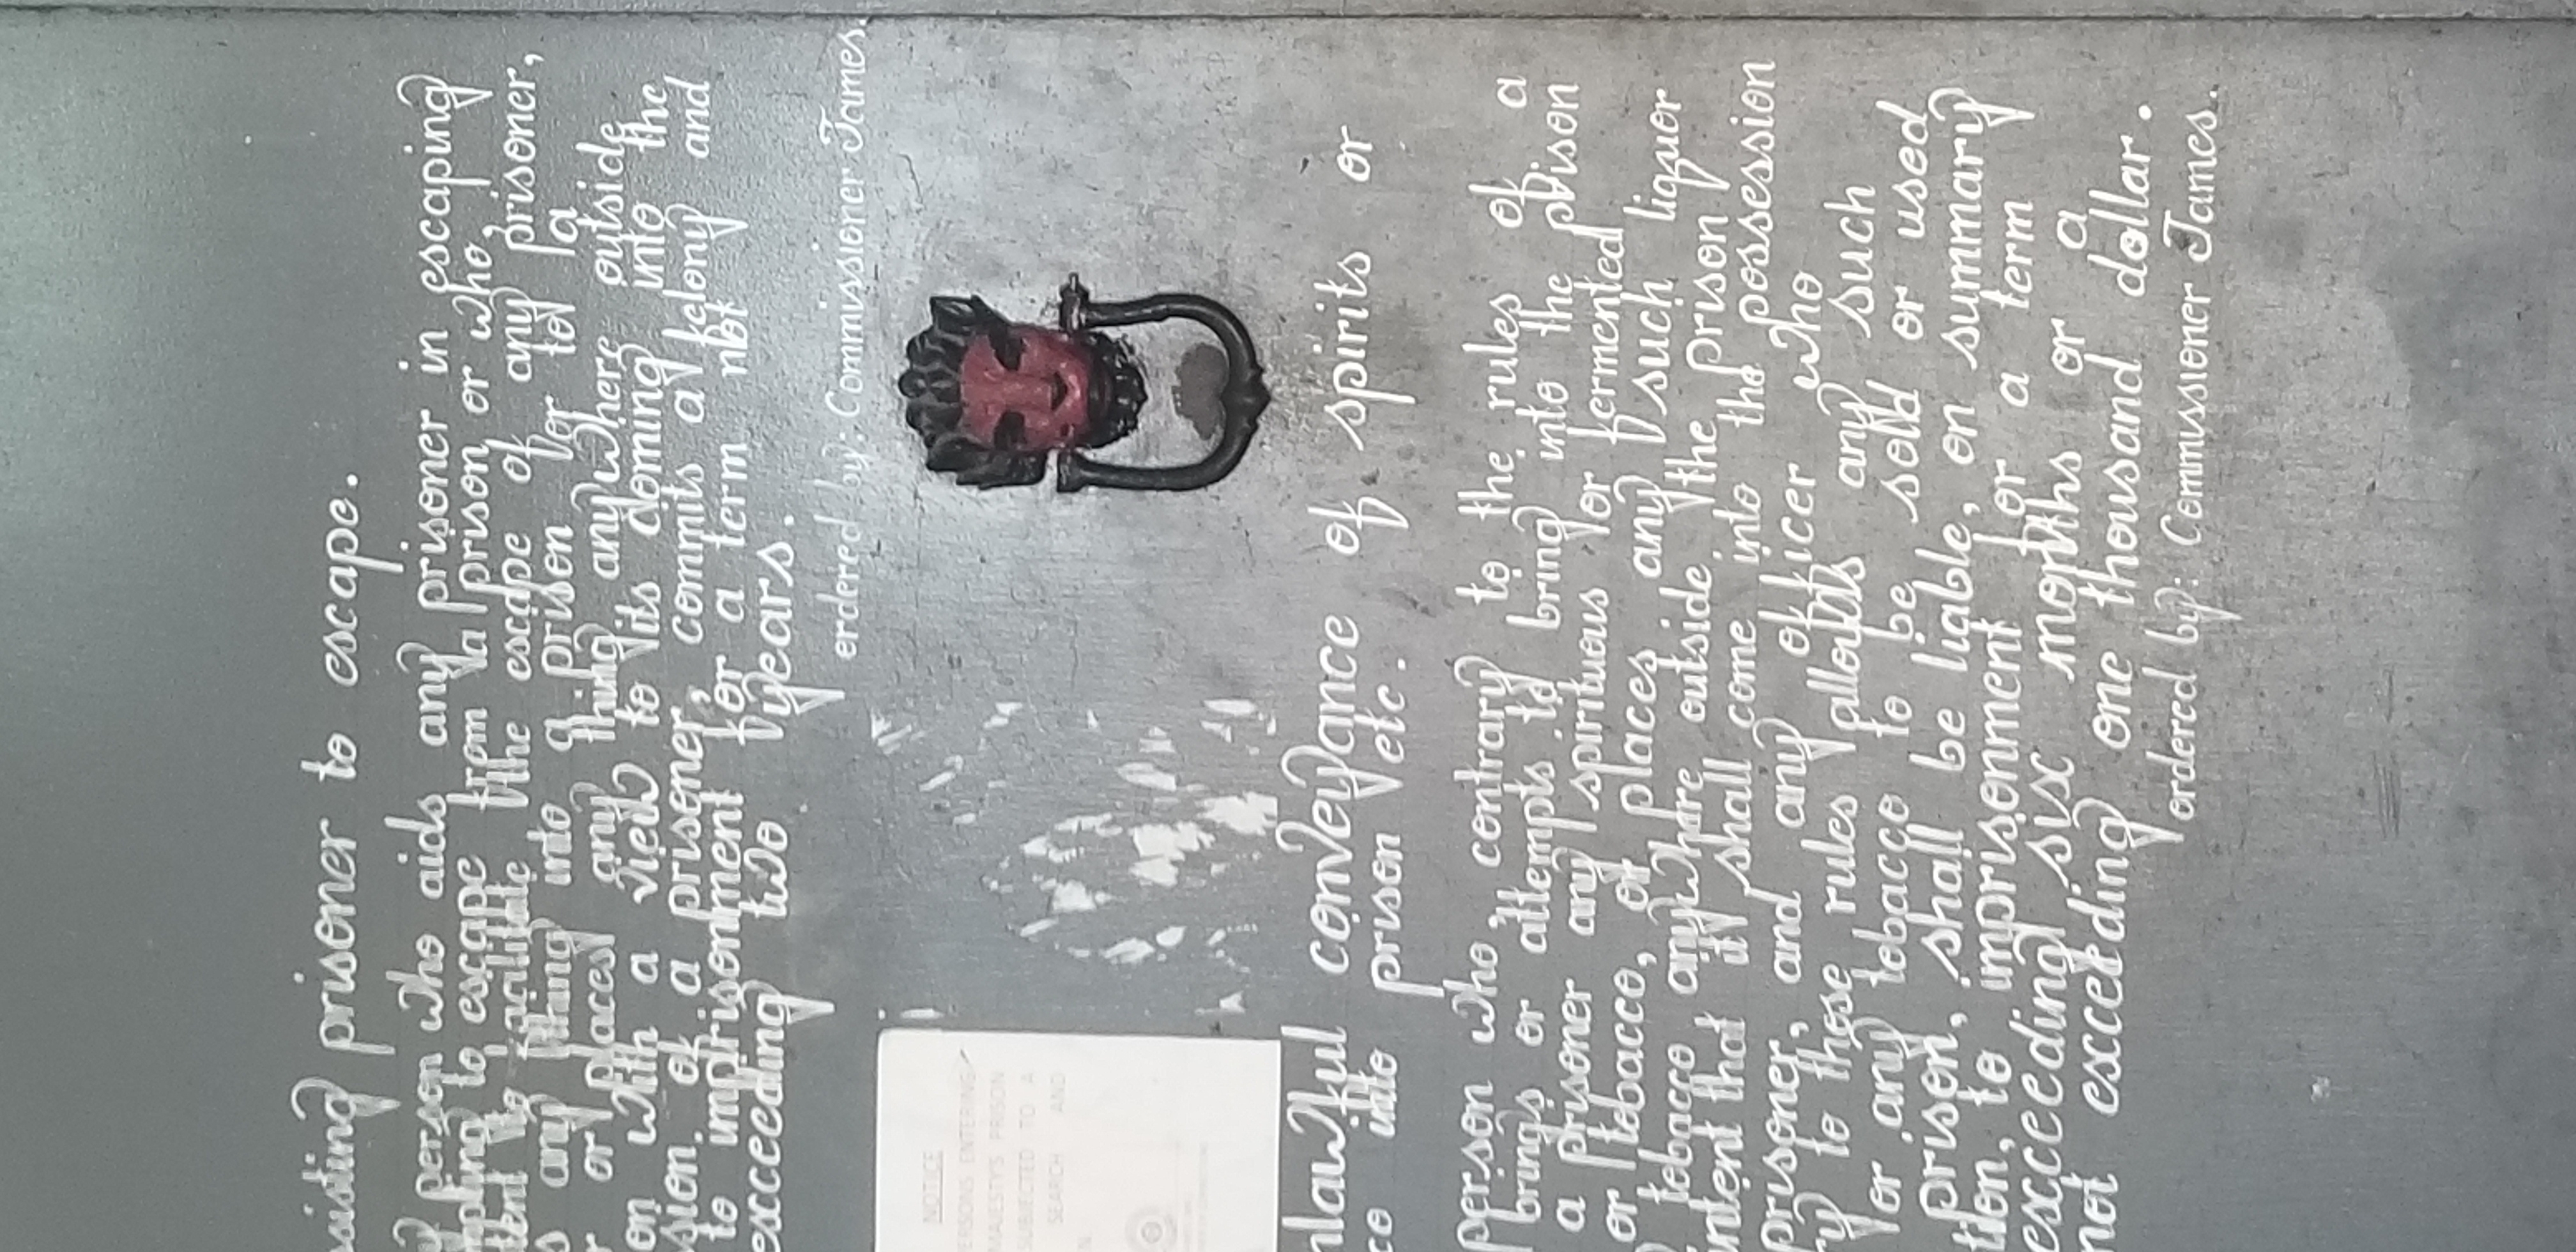 ssisting prisoner to escape.
person who aids any prisoner in escaping
to escape from a prison or who,
to facilitate the escape of any prisoner,
any thing into a prison for to a
or places any thing anywhere outside
on with a view to its coming into the
sion, of a prisoner, commits a felony and
to imprisonment for a term not
exceeding two years.
ordered by: Commissioner James.
NOTICE
ERSONS ENTERING
MAJESTY'S PRISON
SUBJECTED TO A
SEARCH AND
nlawful conveyance of spirits or
co into prison etc.
person who, contrary to the rules of a
brings or attempts to bring into the prison
a prisoner any spirituous or fermented liquor
or tobacco, or places any such liquor
tobacco anywhare outside the prison
intent that it shall come into the possession
prisoner, and any officer who
ry to those rules allowes any such
or any tobacco to be sold or used
prison, shall be liable, on summary
tion, to imprisonment for a term
exceeding six months or a
not exceeding one thousand dollar.
ordered by: Commissioner James.